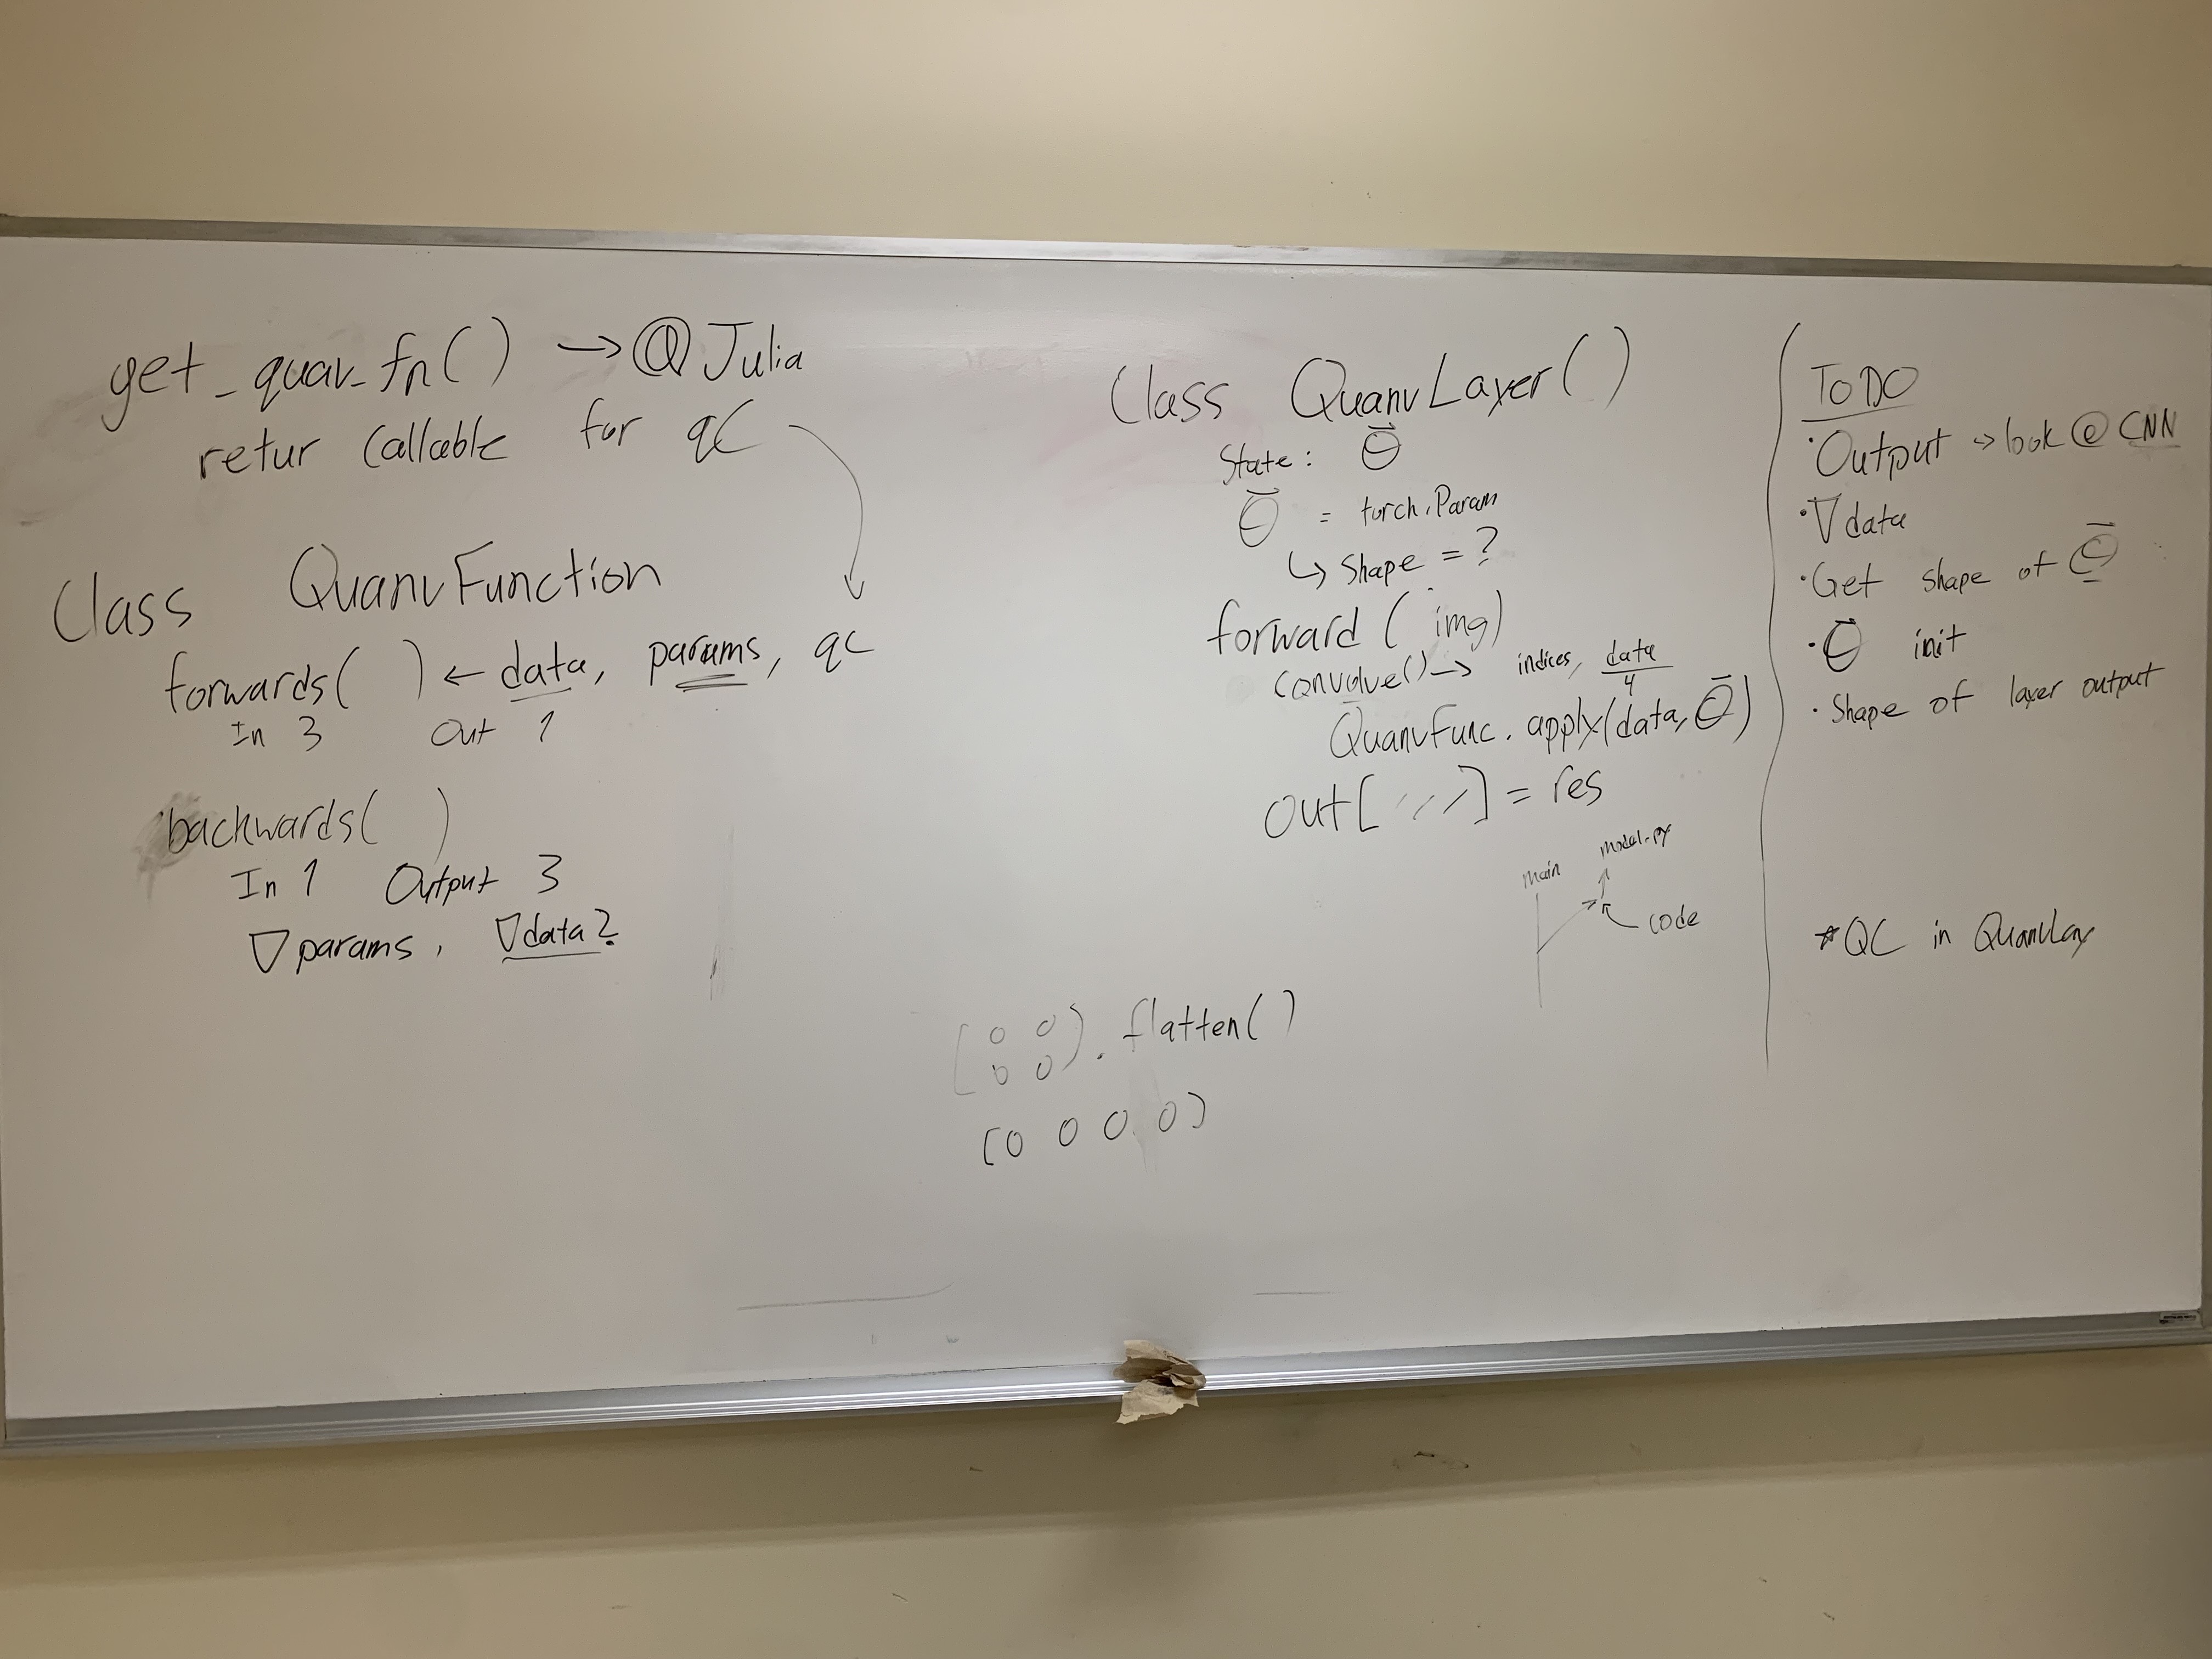 get_quav_fn() → @Julia
retur Callable for qC
Class QuanvFunction
forwards( ) ← data, params, qc
In 3 Out 1
backwards( )
In 1 Output 3
∇params, ∇data?
Class QuanvLayer()
State: Θ̄
Θ̄ = torch.Param
↳ Shape = ?
forward (img)
convolve() → indices, data
4
QuanvFunc.apply(data, Θ̄)
out[ , , , ] = res
main
model.py
code
[0 0
0 0].flatten()
[0 0 0 0]
ToDO
· Output → look @ CNN
· ∇data
· Get shape of Θ̄
· Θ̄ init
· Shape of layer output
*QC in QuanvLay